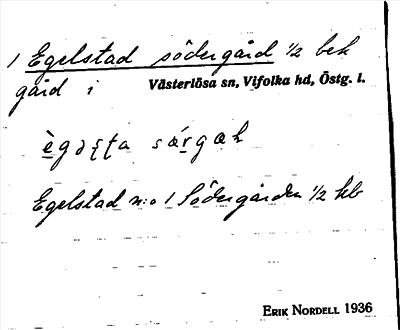 1 Egelstad södergård 1/2 bek
gård i Västerlösa sn, Vifolka hd, Östg. l.
Egelstad n:o 1 Södergården 1/2 kb
ERIK NORDELL 1936